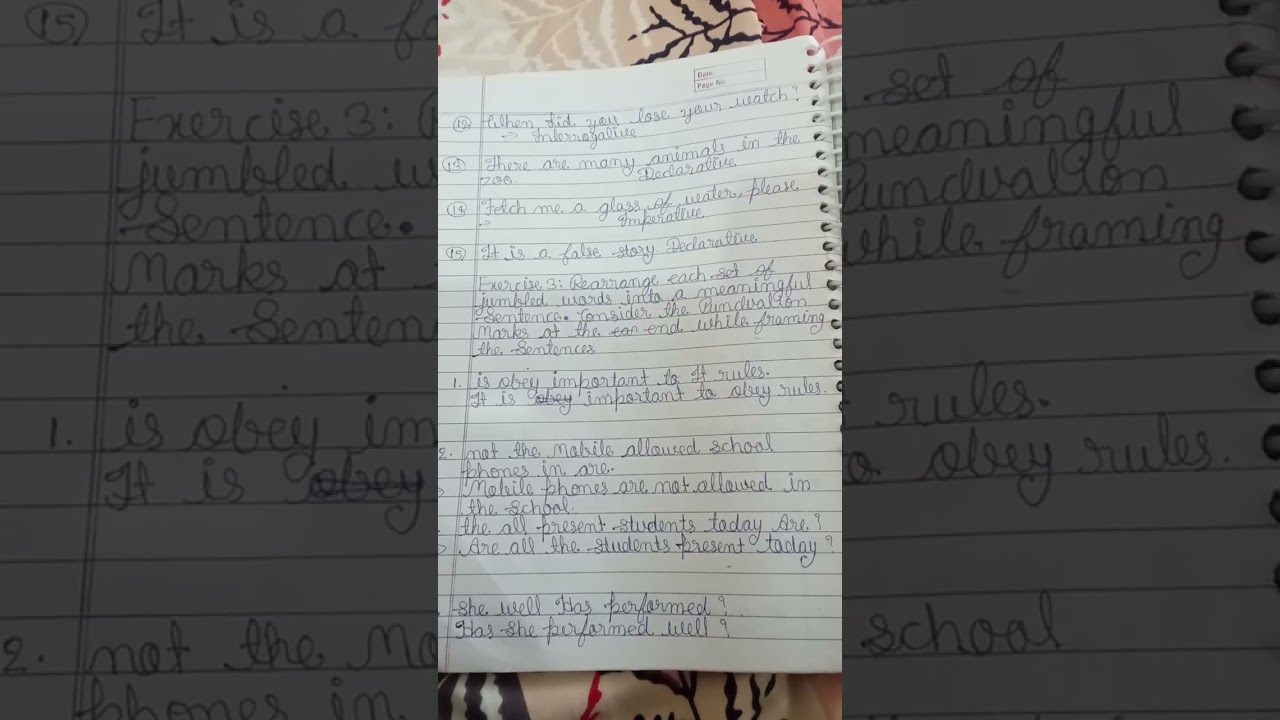 Date
Page No
12 When did you lose your watch?
=> Interrogative
13 There are many animals in the
zoo. Declarative
14 Fetch me a glass of water, please
Imperative
15 It is a false story Declarative
Exercise 3: Rearrange each set of
jumbled words into a meaningful
Sentence. Consider the Puncuation
Marks at the end while framing
the Sentences
1. is obey important to It rules.
It is obey important to obey rules.
2. not the Mobile allowed school
phones in are.
Mobile phones are not allowed in
the school.
the all present students today Are?
Are all the students present today?
She well Has performed?
Has she performed well?